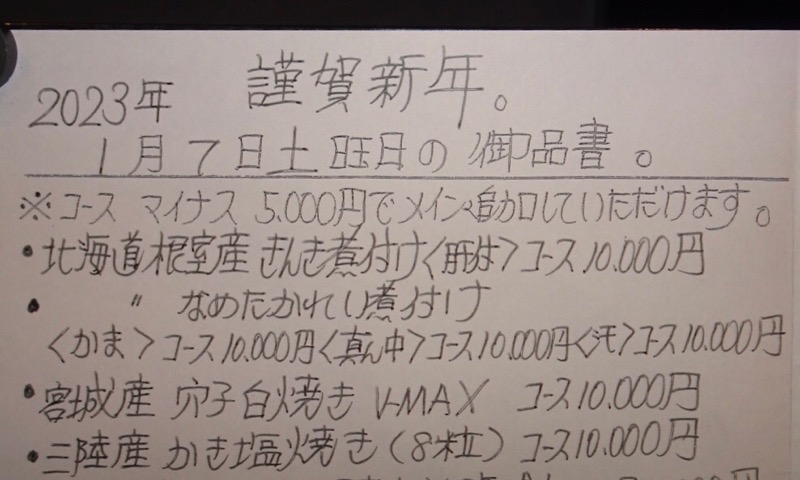 2023年 謹賀新年。
1月7日土曜日の御品書。
※コース マイナス 5.000円でメイン追加していただけます。
・北海道根室産 きんき煮付け<肝付>コース10.000円
・ 〃 なめたかれい煮付け
<かま>コース10.000円<真ん中>コース10.000円<汗>コース10.000円
・宮城産 穴子白焼き V-MAX コース10.000円
・三陸産 かき塩焼き(8粒) コース10.000円